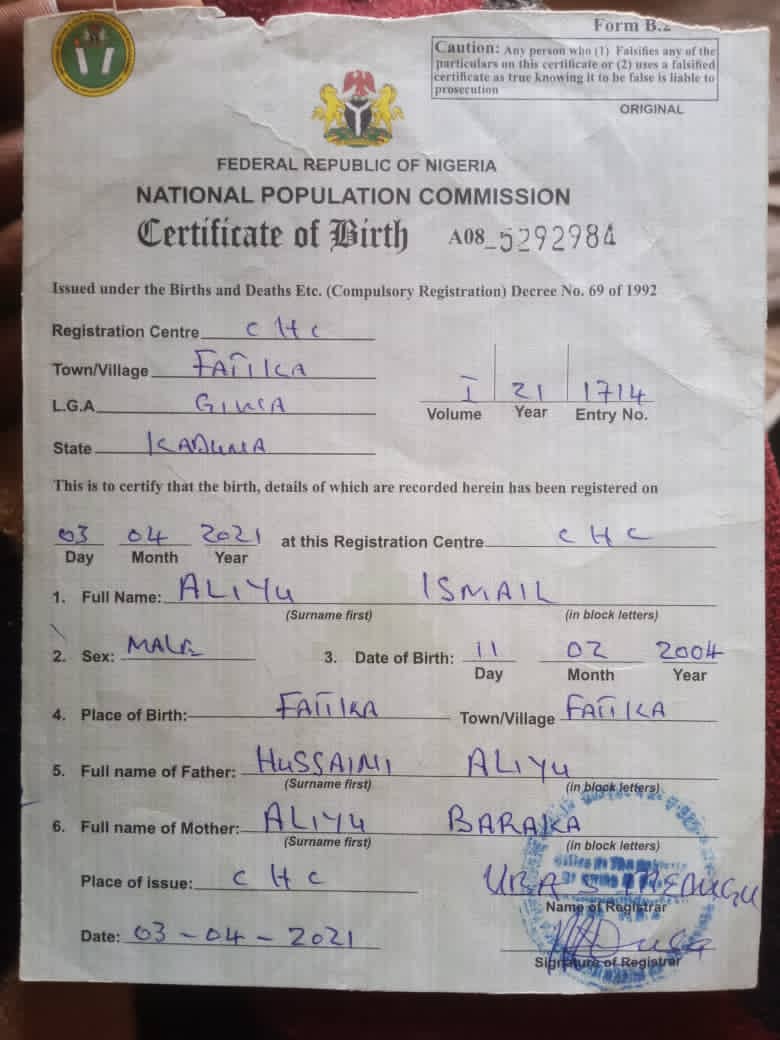 Form B.2
Caution: Any person who (1) Falsifies any of the
particulars on this certificate or (2) uses a falsified
certificate as true knowing it to be false is liable to
prosecution
ORIGINAL
FEDERAL REPUBLIC OF NIGERIA
NATIONAL POPULATION COMMISSION
Certificate of Birth A08 5292984
Issued under the Births and Deaths Etc. (Compulsory Registration) Decree No. 69 of 1992
Registration Centre CHC
Town/Village FATIKA
L.G.A GIWA
I 21 1714
Volume Year Entry No.
State KADUNA
This is to certify that the birth, details of which are recorded herein has been registered on
03 04 2021 at this Registration Centre CHC
Day Month Year
1. Full Name: ALIYU ISMAIL
(Surname first) (in block letters)
2. Sex: MALE 3. Date of Birth: 11 02 2004
Day Month Year
4. Place of Birth: FATIKA Town/Village FATIKA
5. Full name of Father: HUSSAINI ALIYU
(Surname first) (in block letters)
6. Full name of Mother: ALIYU BARAKA
(Surname first) (in block letters)
Place of issue: CHC UBA S
Name of Registrar
Date: 03-04-2021
Signature of Registrar